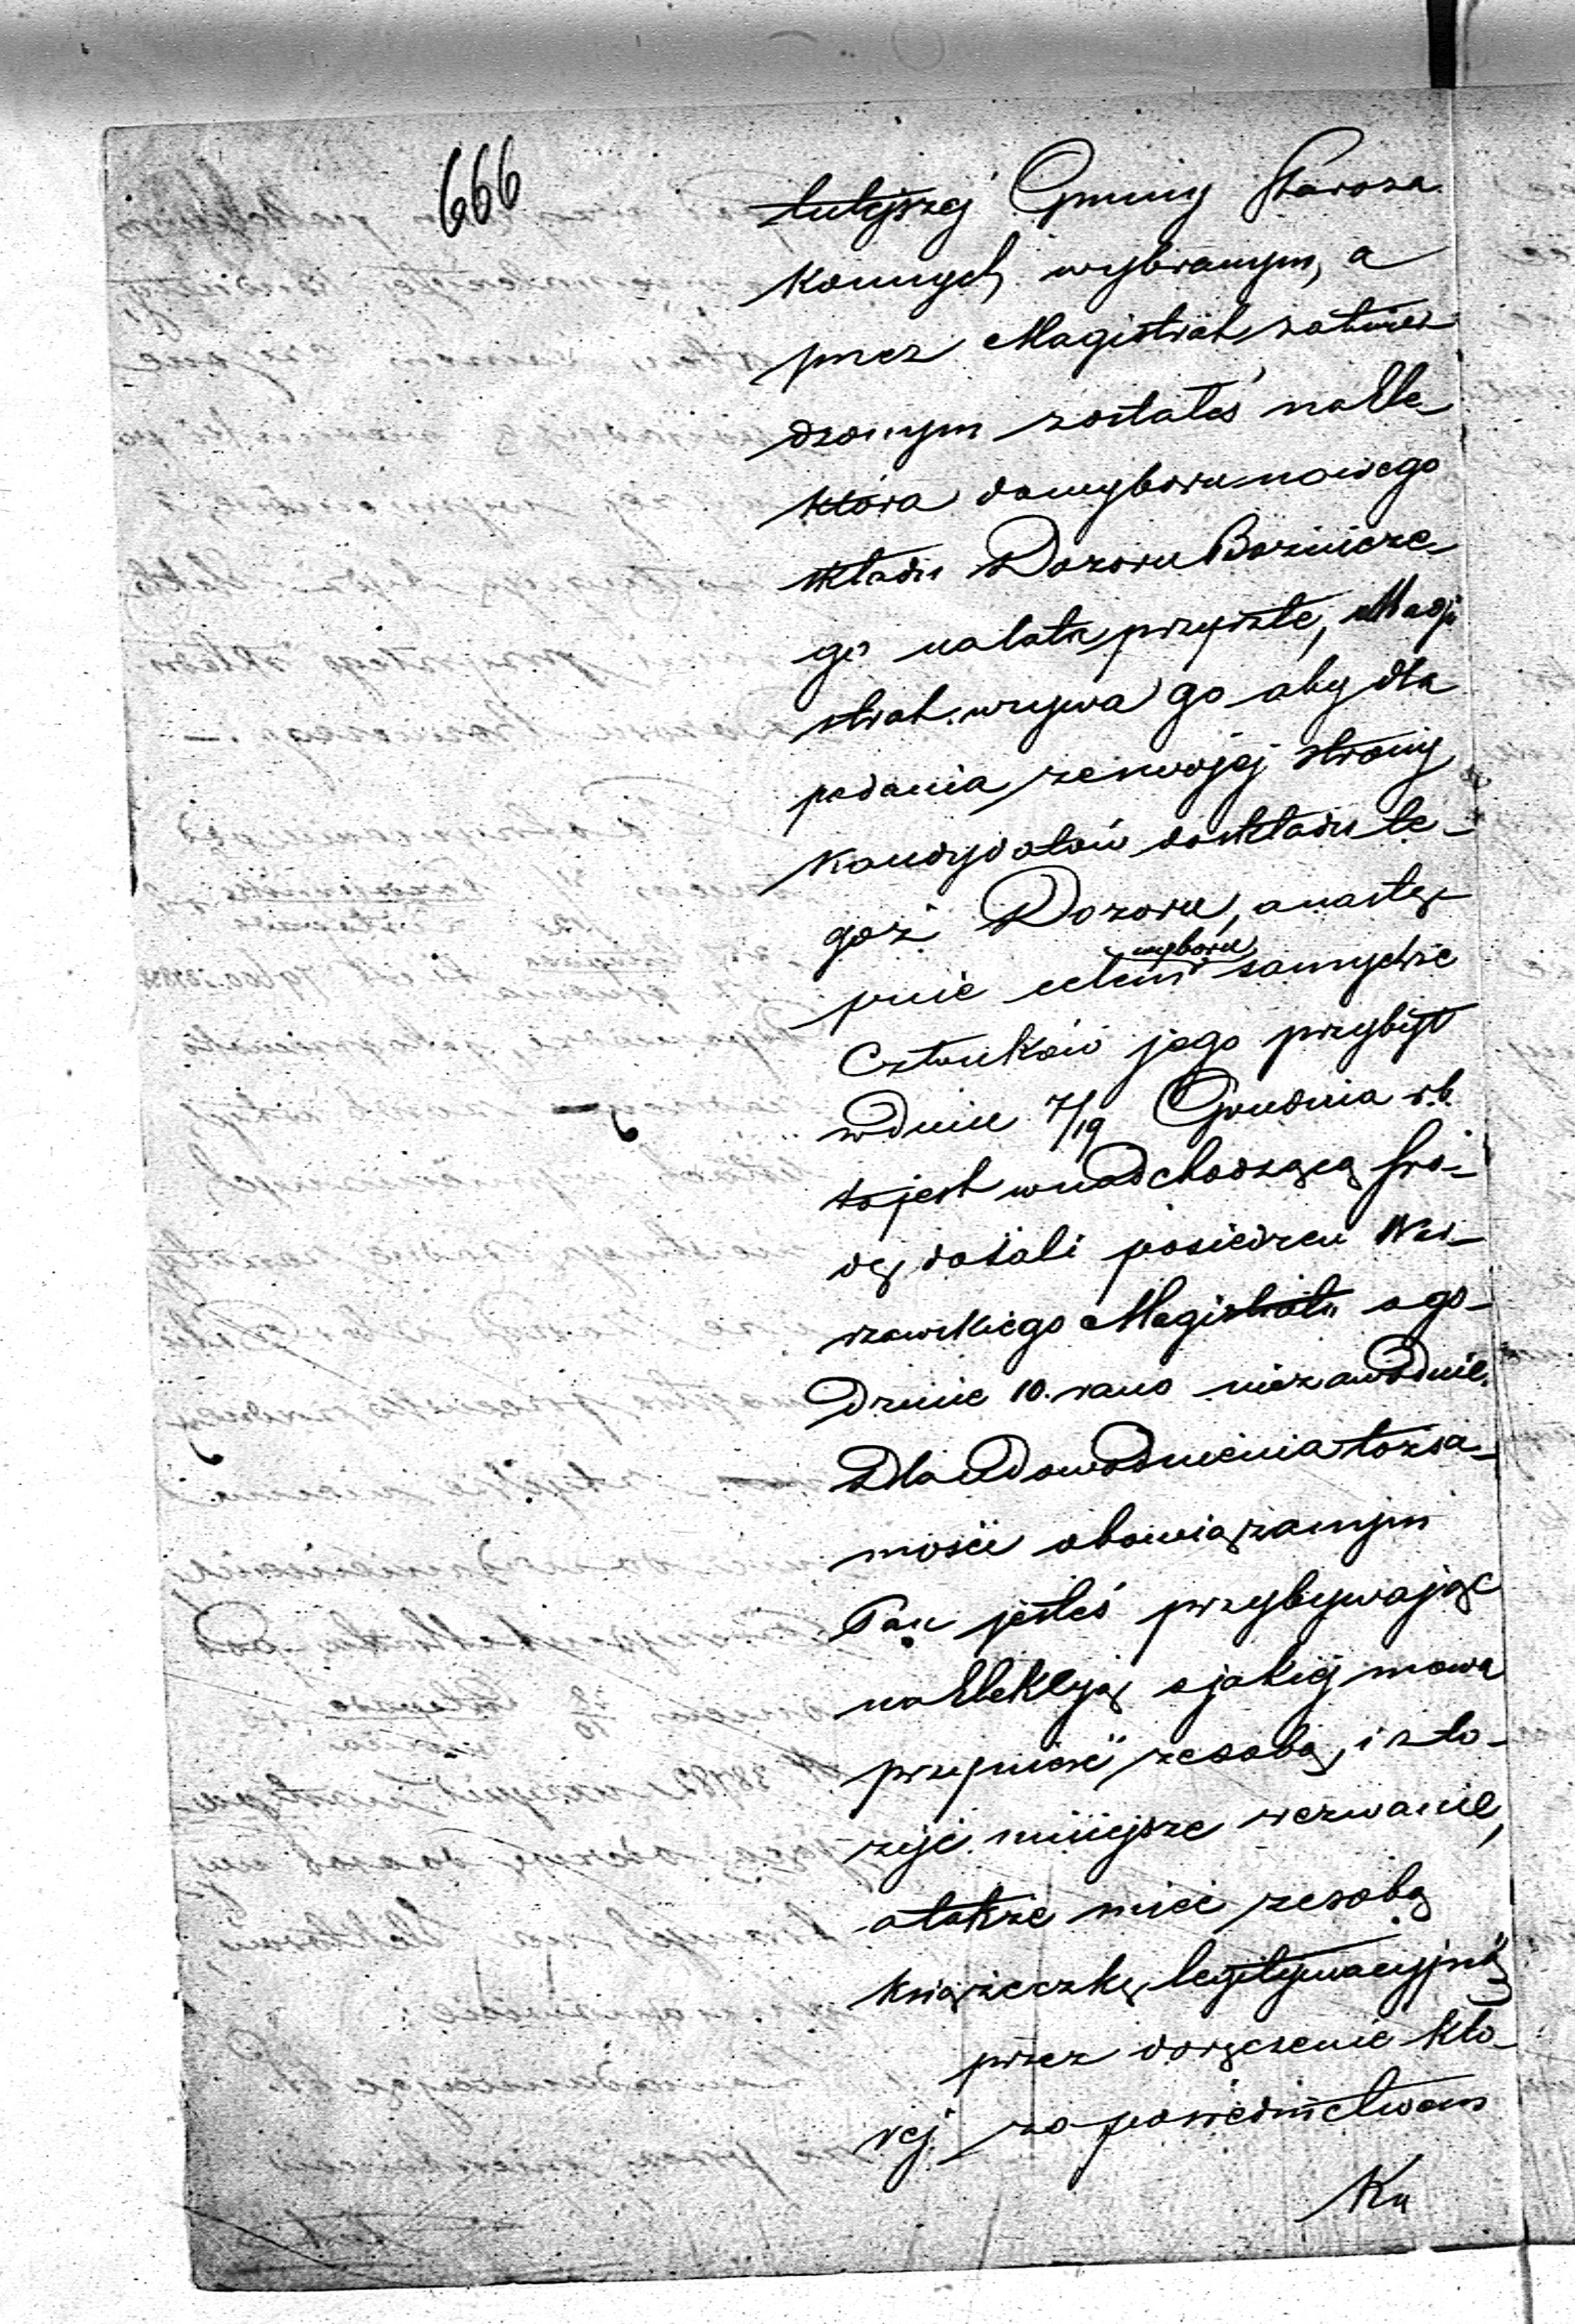 666
tutejszej Gminy Staroza
konnych wybranym, a
przez Magistrat zatwier
dzonym zostałeś na Ele-
ktora do wyboru nowego
składu Dozoru Bożnicze-
go na lata przyszłe, Magi
strat wzywa go aby dla
podania ze swojej strony
kandydatów do składu te-
goż Dozoru, a nastę-
pnie celem wyboru samychże
Członków jego przybył
w dniu 7/19 Grudnia r.b.
to jest w nadchodzącą śro-
dę do Sali posiedzeń War-
szawskiego Magistratu o go-
dzinie 10. rano niezawodnie.
Dla udowodnienia tożsa-
mości obowiązanym
Pan jesteś przybywając
na Elekcyę o jakiej mowa
przynieść ze sobą, i zło-
żyć niniejsze wezwanie,
a także mieć ze sobą
książeczkę legitymacyjną
przez doręczenie któ-
rej za pośrednictwem
Ku